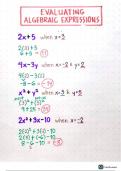 EVALUATING
ALGEBRAIC EXPRESSIONS
2x+5 when x=3
2(3)+5
6+5 = 11
4x-3y when x=-2 & y=2
4(-2)-3(2)
-8-6 = -14
x²+y² when x=3 & y=5
(3)²+(5)²
9+25 = 34
2x²+3x-10 when x=-2
2(-2)²+3(-2)-10
2(4)+(-6)-10
8-6-10 = -8